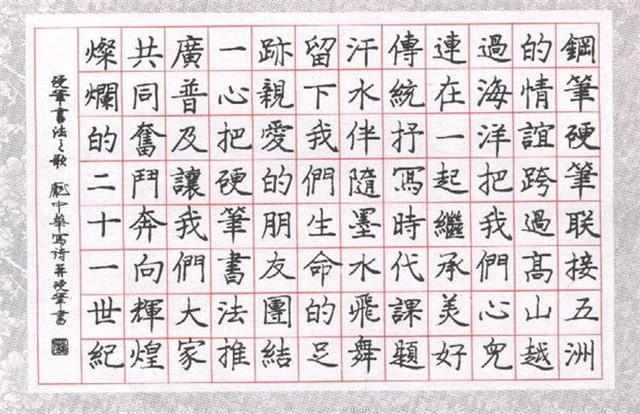 鋼筆硬筆联接五洲
的情誼跨過髙山越
過海洋把我們心兒
連在一起繼承美好
傳統抒寫時代課題
汗水伴隨墨水飛舞
留下我們生命的足
跡親愛的朋友團結
一心把硬筆書法推
廣普及讓我們大家
共同奮鬥奔向輝煌
燦爛的二十一世紀
硬筆書法之歌 龐中華寫詩并硬筆書